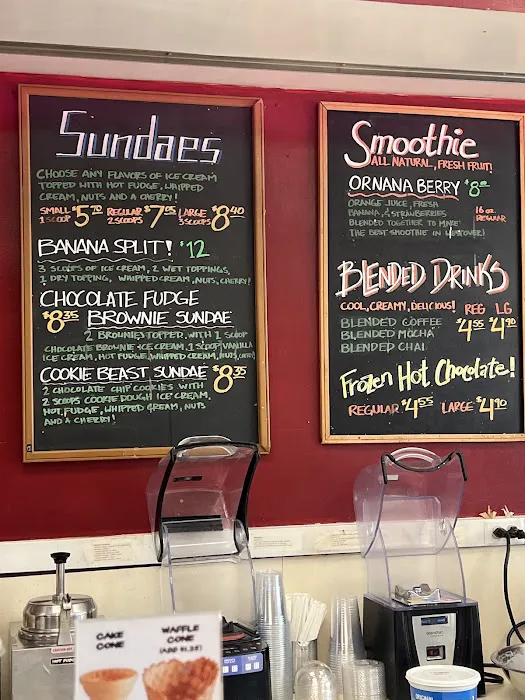 Sundaes
CHOOSE ANY FLAVORS OF ICE CREAM
TOPPED WITH HOT FUDGE, WHIPPED
CREAM, NUTS AND A CHERRY!
SMALL $5.70 REGULAR $7.05 LARGE $8.40
1 SCOOP 2 SCOOPS 3 SCOOPS
BANANA SPLIT! $12
3 SCOOPS OF ICE CREAM, 2 WET TOPPINGS,
1 DRY TOPPING, WHIPPED CREAM, NUTS, CHERRY!
CHOCOLATE FUDGE
$8.35 BROWNIE SUNDAE
2 BROWNIES TOPPED WITH 1 SCOOP
CHOCOLATE BROWNIE ICE CREAM, 1 SCOOP VANILLA
ICE CREAM, HOT FUDGE, WHIPPED CREAM, NUTS, CHERRY!
COOKIE BEAST SUNDAE $8.35
2 CHOCOLATE CHIP COOKIES WITH
2 SCOOPS COOKIE DOUGH ICE CREAM,
HOT FUDGE, WHIPPED CREAM, NUTS
AND A CHERRY!
Smoothie
ALL NATURAL, FRESH FRUIT!
ORNANA BERRY $8
ORANGE JUICE, FRESH
BANANA, & STRAWBERRIES
BLENDED TOGETHER TO MAKE
THE BEST SMOOTHIE IN
16 oz.
REGULAR
BLENDED DRINKS
COOL, CREAMY, DELICIOUS! REG LG
BLENDED COFFEE $4.55 $4.90
BLENDED MOCHA
BLENDED CHAI
Frozen Hot Chocolate!
REGULAR $4.55 LARGE $4.90
CAKE
CONE
WAFFLE
CONE
(ADD $1.25)
HOT FUDGE
ORIGINAL